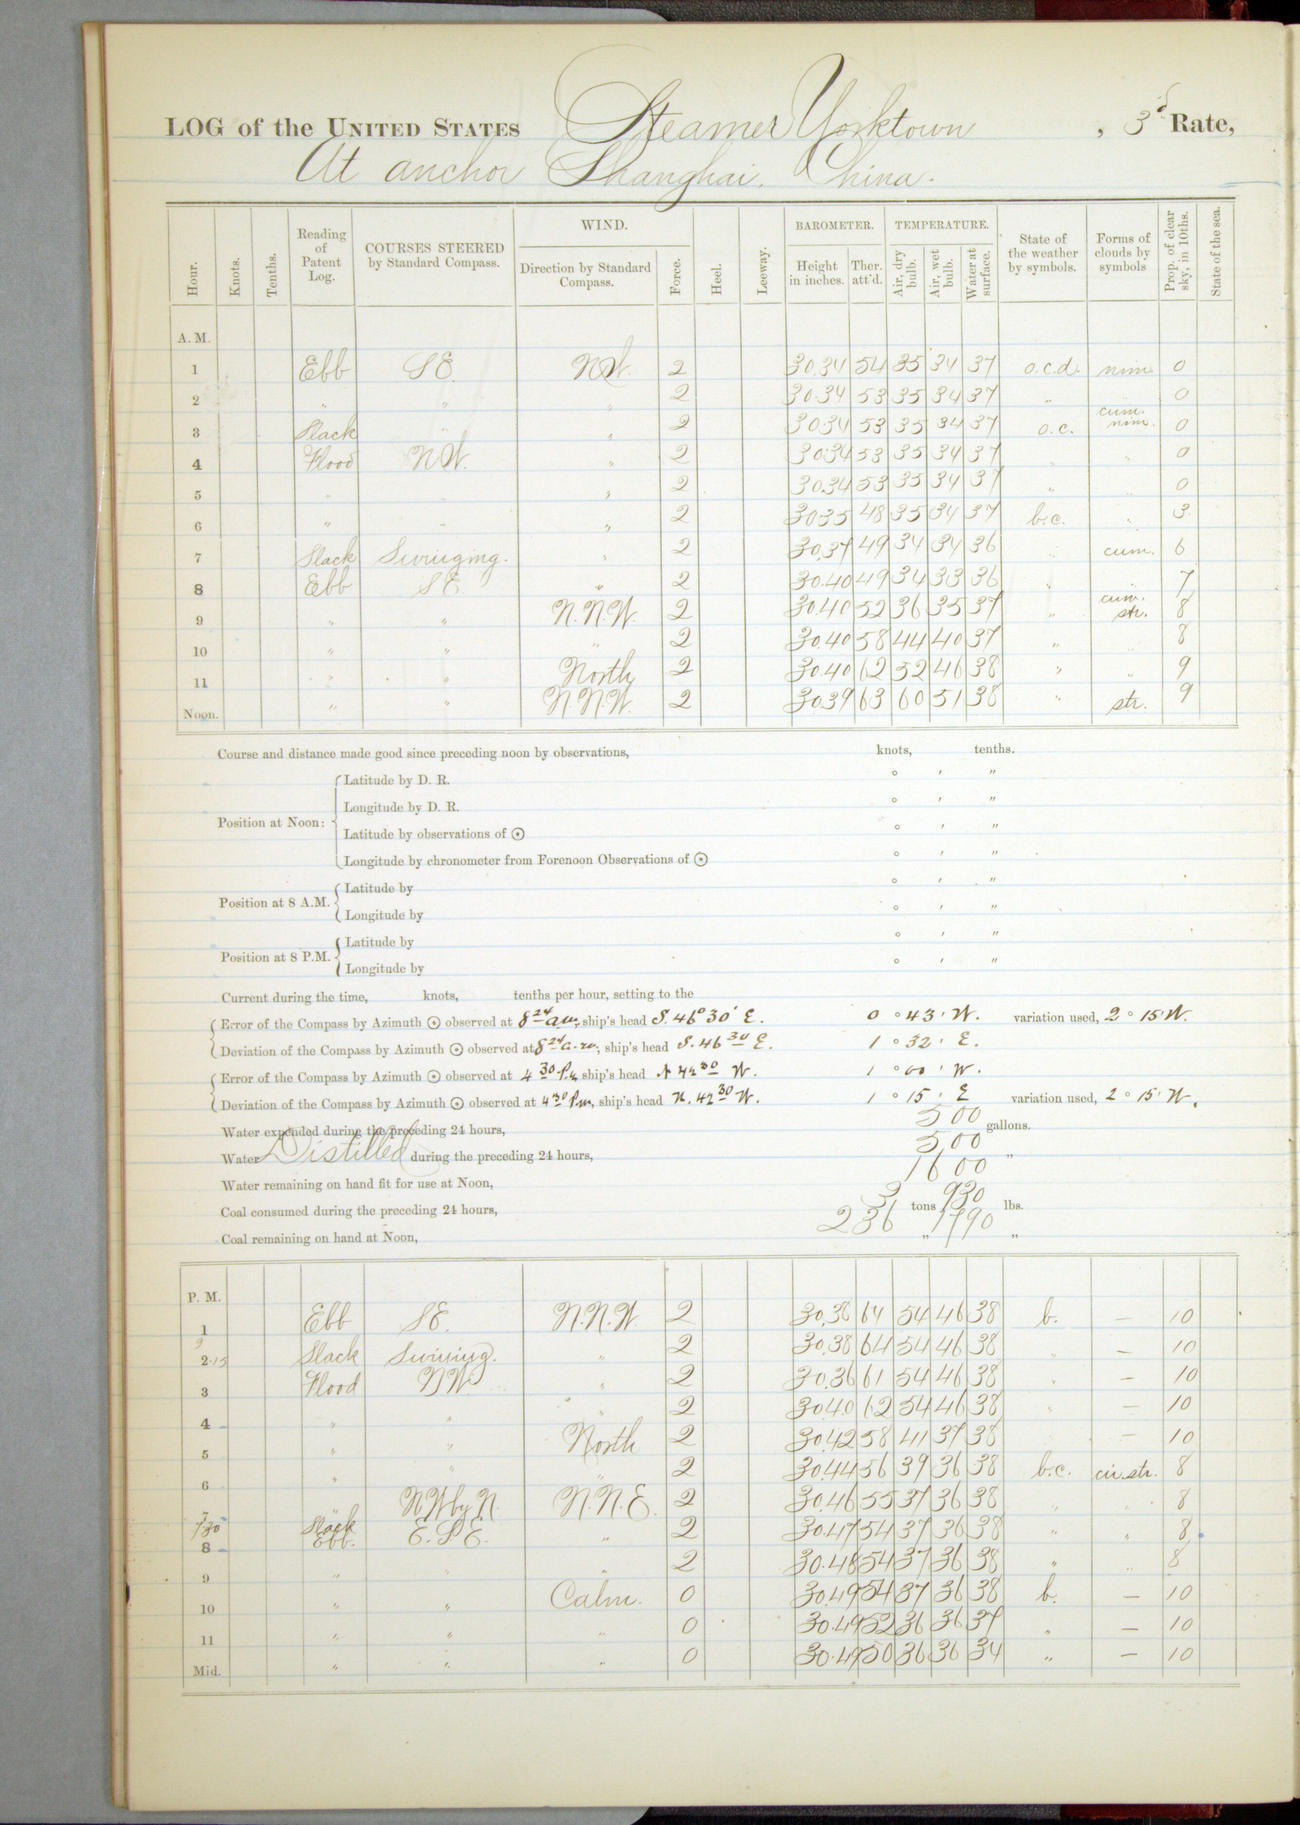 LOG of the UNITED STATES Steamer Yorktown, 3d Rate,
At anchor Shanghai. China.
Hour. Knots. Tenths. Reading of Patent Log. COURSES STEERED by Standard Compass. WIND. Direction by Standard Compass. Force. Heel. Leeway. BAROMETER. Height in inches. Ther. att'd. TEMPERATURE. Air, dry bulb. Air, wet bulb. Water at surface. State of the weather by symbols. Forms of clouds by symbols Prop. of clear sky, in 10ths. State of the sea.
A. M.
1 Ebb SE. NW. 2 30.34 54 35 34 37 o.c.d. nim. 0
2 " " " 2 30.34 53 35 34 37 " " 0
3 Slack " " 2 30.34 53 35 34 37 o.c. cum. nim. 0
4 Flood NW. " 2 30.34 53 35 34 37 " " 0
5 " " " 2 30.34 53 35 34 37 " " 0
6 " " " 2 30.35 48 35 34 37 b.c. " 3
7 Slack Swinging. " 2 30.37 49 34 34 36 " cum. 6
8 Ebb SE " 2 30.40 49 34 33 36 " " 7
9 " " N.N.W. 2 30.40 52 36 35 37 " cum. str. 8
10 " " " 2 30.40 58 44 40 37 " " 8
11 " " North 2 30.40 62 52 46 38 " " 9
Noon. " " N.N.W. 2 30.39 63 60 51 38 " str. 9
Course and distance made good since preceding noon by observations, knots, tenths.
Position at Noon: Latitude by D. R. ° ' "
Longitude by D. R. ° ' "
Latitude by observations of ☉ ° ' "
Longitude by chronometer from Forenoon Observations of ☉ ° ' "
Position at 8 A.M. Latitude by ° ' "
Longitude by ° ' "
Position at 8 P.M. Latitude by ° ' "
Longitude by ° ' "
Current during the time, knots, tenths per hour, setting to the
Error of the Compass by Azimuth ☉ observed at 8 24 am, ship's head S. 46° 30' E. 0 ° 43 ' W. variation used, 2 ° 15' W.
Deviation of the Compass by Azimuth ☉ observed at 8 24 a.m., ship's head S. 46 30 E. 1 ° 32 ' E.
Error of the Compass by Azimuth ☉ observed at 4 30 P.m, ship's head N 42 30 W. 1 ° 00 ' W.
Deviation of the Compass by Azimuth ☉ observed at 4 30 P.m, ship's head N. 42 30 W. 1 ° 15 ' E variation used, 2 ° 15' W.
Water expended during the preceding 24 hours, 500 gallons.
Water Distilled during the preceding 24 hours, 500 "
Water remaining on hand fit for use at Noon, 1600
Coal consumed during the preceding 24 hours, 3 tons 930 lbs.
Coal remaining on hand at Noon, 236 " 1790 "
P. M.
1 Ebb SE. N.N.W. 2 30.38 64 54 46 38 b. — 10
2.15 Slack Swinging. " 2 30.38 64 54 46 38 " — 10
3 Flood NW. " 2 30.36 61 54 46 38 " — 10
4 " " " 2 30.40 62 54 46 38 " — 10
5 " " North 2 30.42 58 41 37 38 — 10
6 " " " 2 30.44 56 39 36 38 b.c. cir.str. 8
7 " NW by N. N.N.E. 2 30.46 55 37 36 38 " " 8
7 30 Slack
8 Ebb. E.S.E. " 2 30.47 54 37 36 38 " " 8
9 " " " 2 30.48 54 37 36 38 " " 8
10 " " Calm. 0 30.49 54 37 36 38 b. — 10
11 " " " 0 30.49 52 36 36 37 " — 10
Mid. " " " 0 30.49 50 36 36 34 " — 10